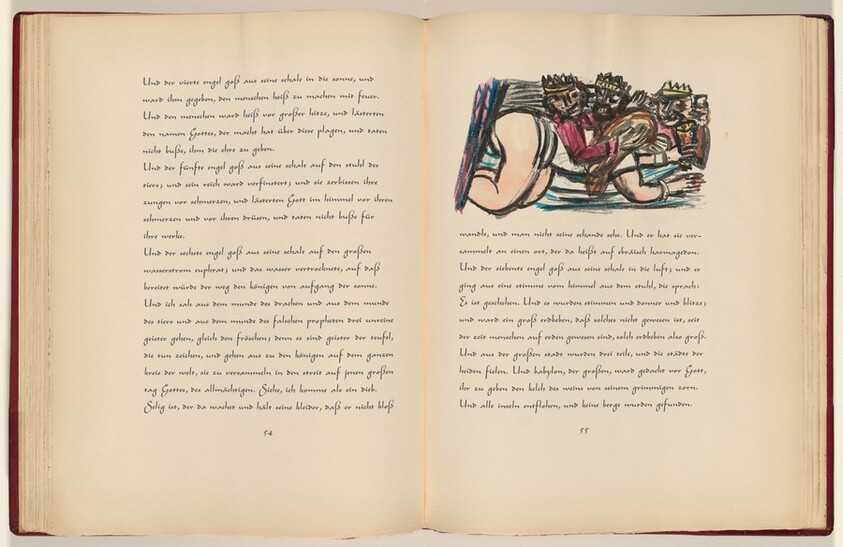 Und der vierte engel goß aus seine schale in die sonne, und
ward ihm gegeben, den menschen heiß zu machen mit feuer.
Und den menschen ward heiß vor großer hitze, und lästerten
den namen Gottes, der macht hat über diese plagen, und taten
nicht buße, ihm die ehre zu geben.
Und der fünfte engel goß aus seine schale auf den stuhl des
tiers; und sein reich ward verfinstert; und sie zerbissen ihre
zungen vor schmerzen, und lästerten Gott im himmel vor ihren
schmerzen und vor ihren drüsen, und taten nicht buße für
ihre werke.
Und der sechste engel goß aus seine schale auf den großen
wasserstrom euphrat; und das wasser vertrocknete, auf daß
bereitet würde der weg den königen von aufgang der sonne.
Und ich sah aus dem munde des drachen und aus dem munde
des tiers und aus dem munde des falschen propheten drei unreine
geister gehen, gleich den fröschen; denn es sind geister der teufel,
die tun zeichen, und gehen aus zu den königen auf dem ganzen
kreis der welt, sie zu versammeln in den streit auf jenen großen
tag Gottes, des allmächtigen. Siehe, ich komme als ein dieb.
Selig ist, der da wachet und hält seine kleider, daß er nicht bloß
54
wandle, und man nicht seine schande sehe. Und er hat sie ver-
sammelt an einen ort, der da heißt auf ebräisch harmagedon.
Und der siebente engel goß aus seine schale in die luft; und es
ging aus eine stimme vom himmel aus dem stuhl, die sprach:
Es ist geschehen. Und es wurden stimmen und donner und blitze;
und ward ein groß erdbeben, daß solches nicht gewesen ist, seit
der zeit menschen auf erden gewesen sind, solch erdbeben also groß.
Und aus der großen stadt wurden drei teile, und die städte der
heiden fielen. Und babylon, der großen, ward gedacht vor Gott,
ihr zu geben den kelch des weins von seinem grimmigen zorn.
Und alle inseln entflohen, und keine berge wurden gefunden.
55